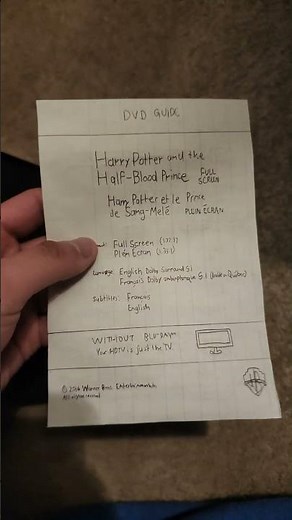 DVD GUIDE
Harry Potter and the
Half-Blood Prince FULL
SCREEN
Harry Potter et le Prince
de Sang-Mêlé PLEIN ÉCRAN
Full Screen
Plein Écran
Language: English Dolby Surround 5.1
Français Dolby 5.1
Subtitles: Francais
English
WITHOUT BLU-RAY
Your HDTV is just the TV.
Warner Bros. Entertainment
All rights reserved
WB